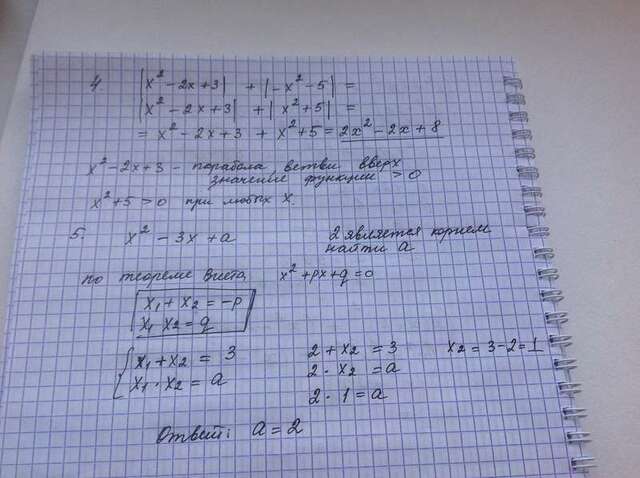 4 |x² - 2x + 3| + |-x² - 5| =
|x² - 2x + 3| + |x² + 5| =
= x² - 2x + 3 + x² + 5 = 2x² - 2x + 8
x² - 2x + 3 - парабола, ветви вверх
значение функции > 0
x² + 5 > 0 при любых x.
5. x² - 3x + a 2 является корнем
найти a
по теореме Виета, x² + px + q = 0
x₁ + x₂ = -p
x₁ · x₂ = q
x₁ + x₂ = 3 2 + x₂ = 3 x₂ = 3 - 2 = 1
x₁ · x₂ = a 2 · x₂ = a
2 · 1 = a
Ответ: a = 2